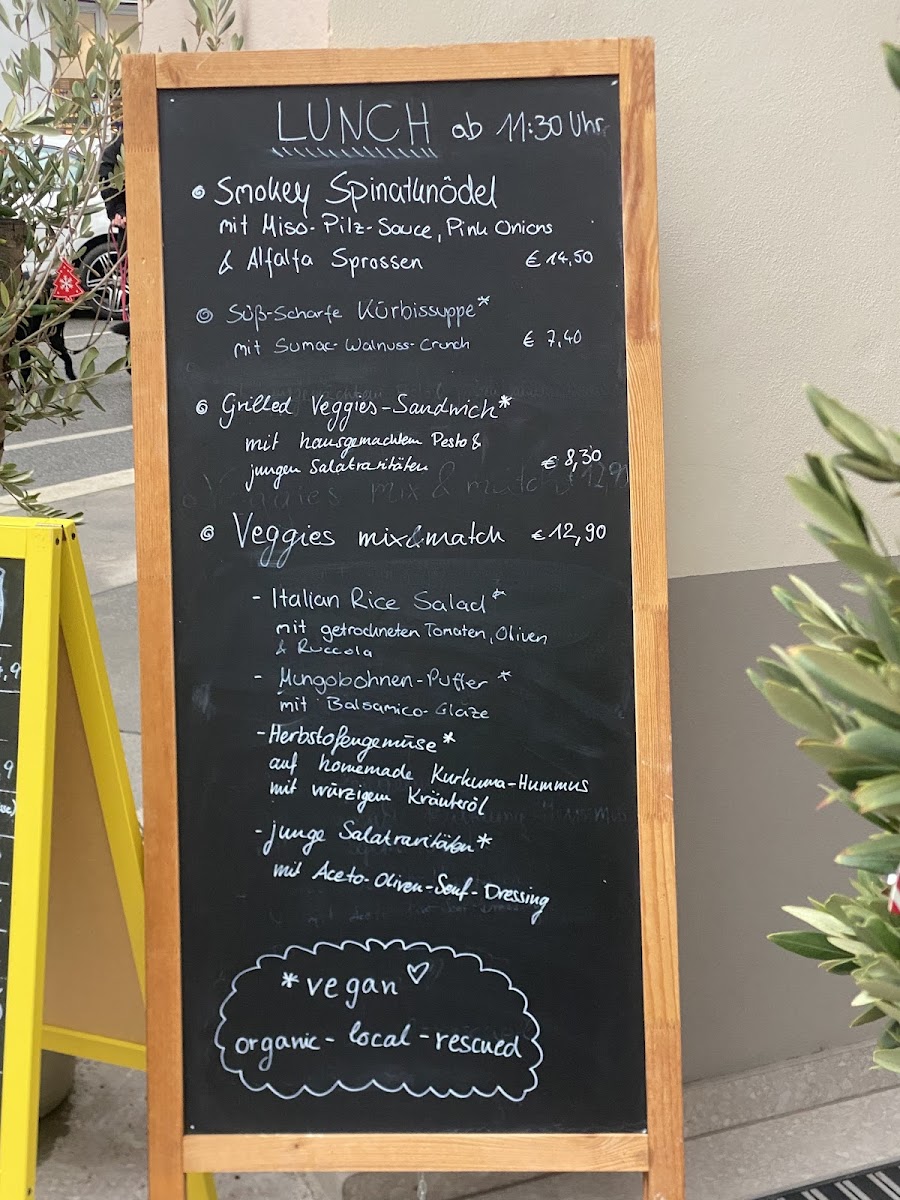 LUNCH ab 11:30 Uhr
Smokey Spinatknödel
mit Miso-Pilz-Sauce, Pink Onions
& Alfalfa Sprossen € 14,50
Süß-Scharfe Kürbissuppe*
mit Sumac-Walnuss-Crunch € 7,40
Grilled Veggies-Sandwich*
mit hausgemachtem Pesto &
jungen Salatraritäten € 8,30
Veggies mix&match € 12,90
- Italian Rice Salad*
mit getrockneten Tomaten, Oliven
& Ruccola
- Mungobohnen-Puffer *
mit Balsamico-Glaze
- Herbstofengemüse*
auf homemade Kurkuma-Hummus
mit würzigem Kräuteröl
- junge Salatraritäten*
mit Aceto-Oliven-Senf-Dressing
*vegan♡
organic - local - rescued